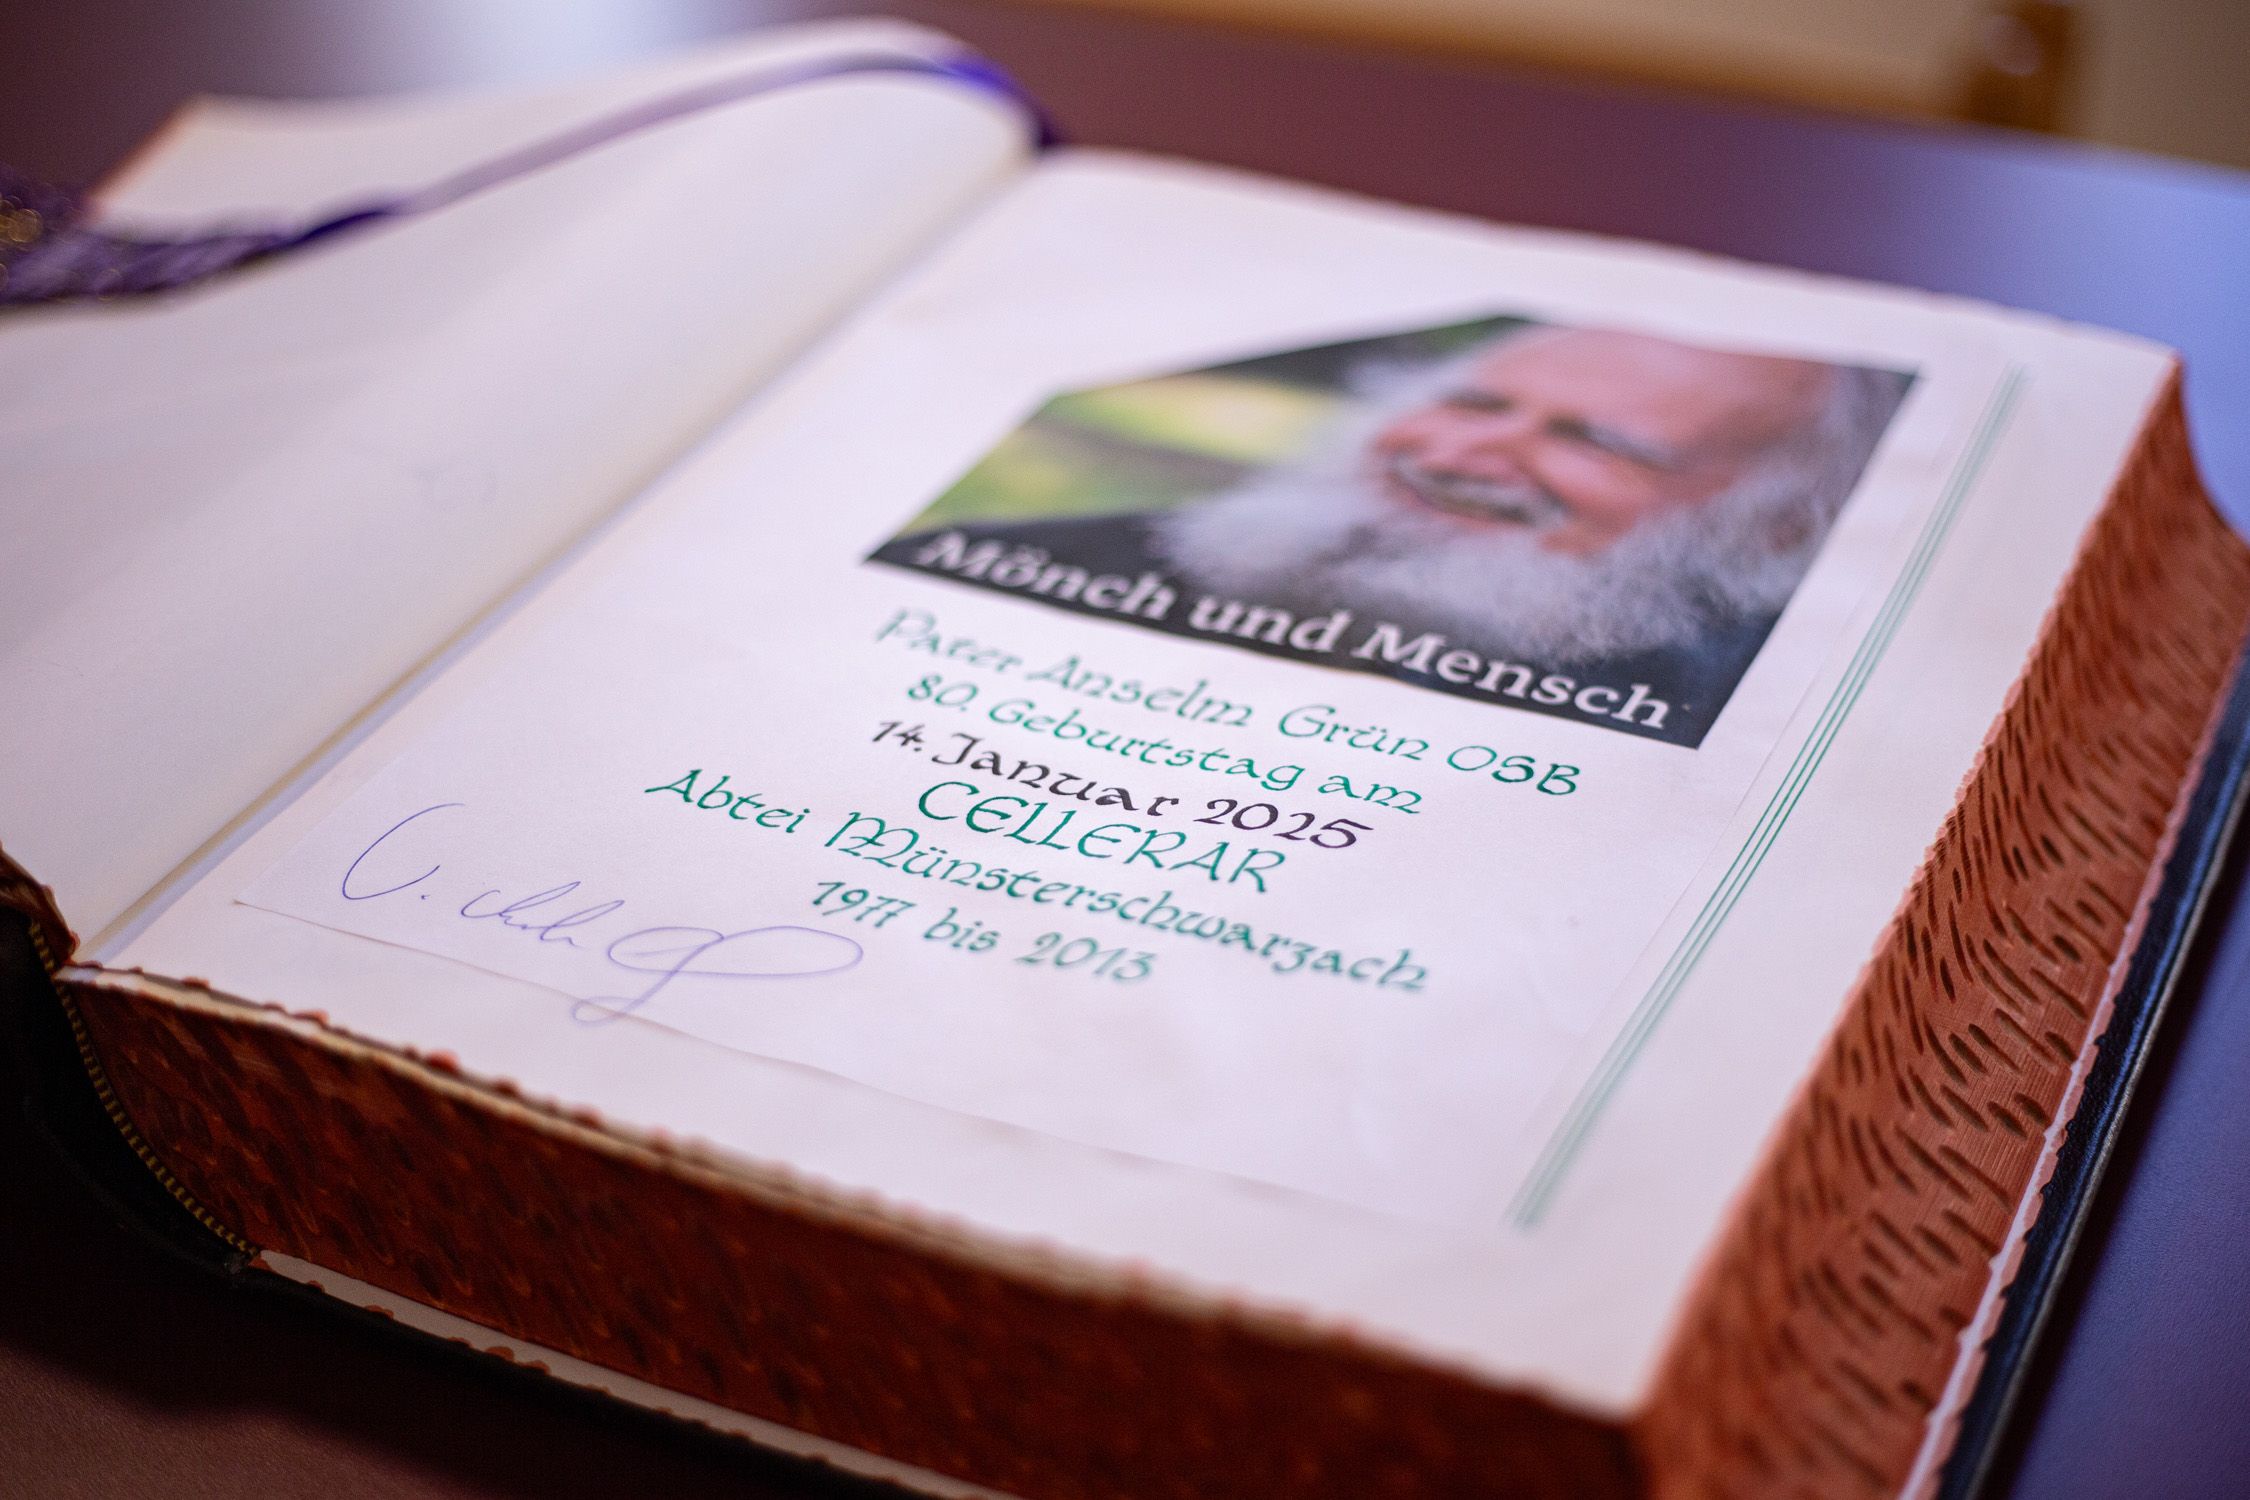 Mönch und Mensch
Pater Anselm Grün OSB
80. Geburtstag am
14. Januar 2025
CELLERAR
Abtei Münsterschwarzach
1977 bis 2013